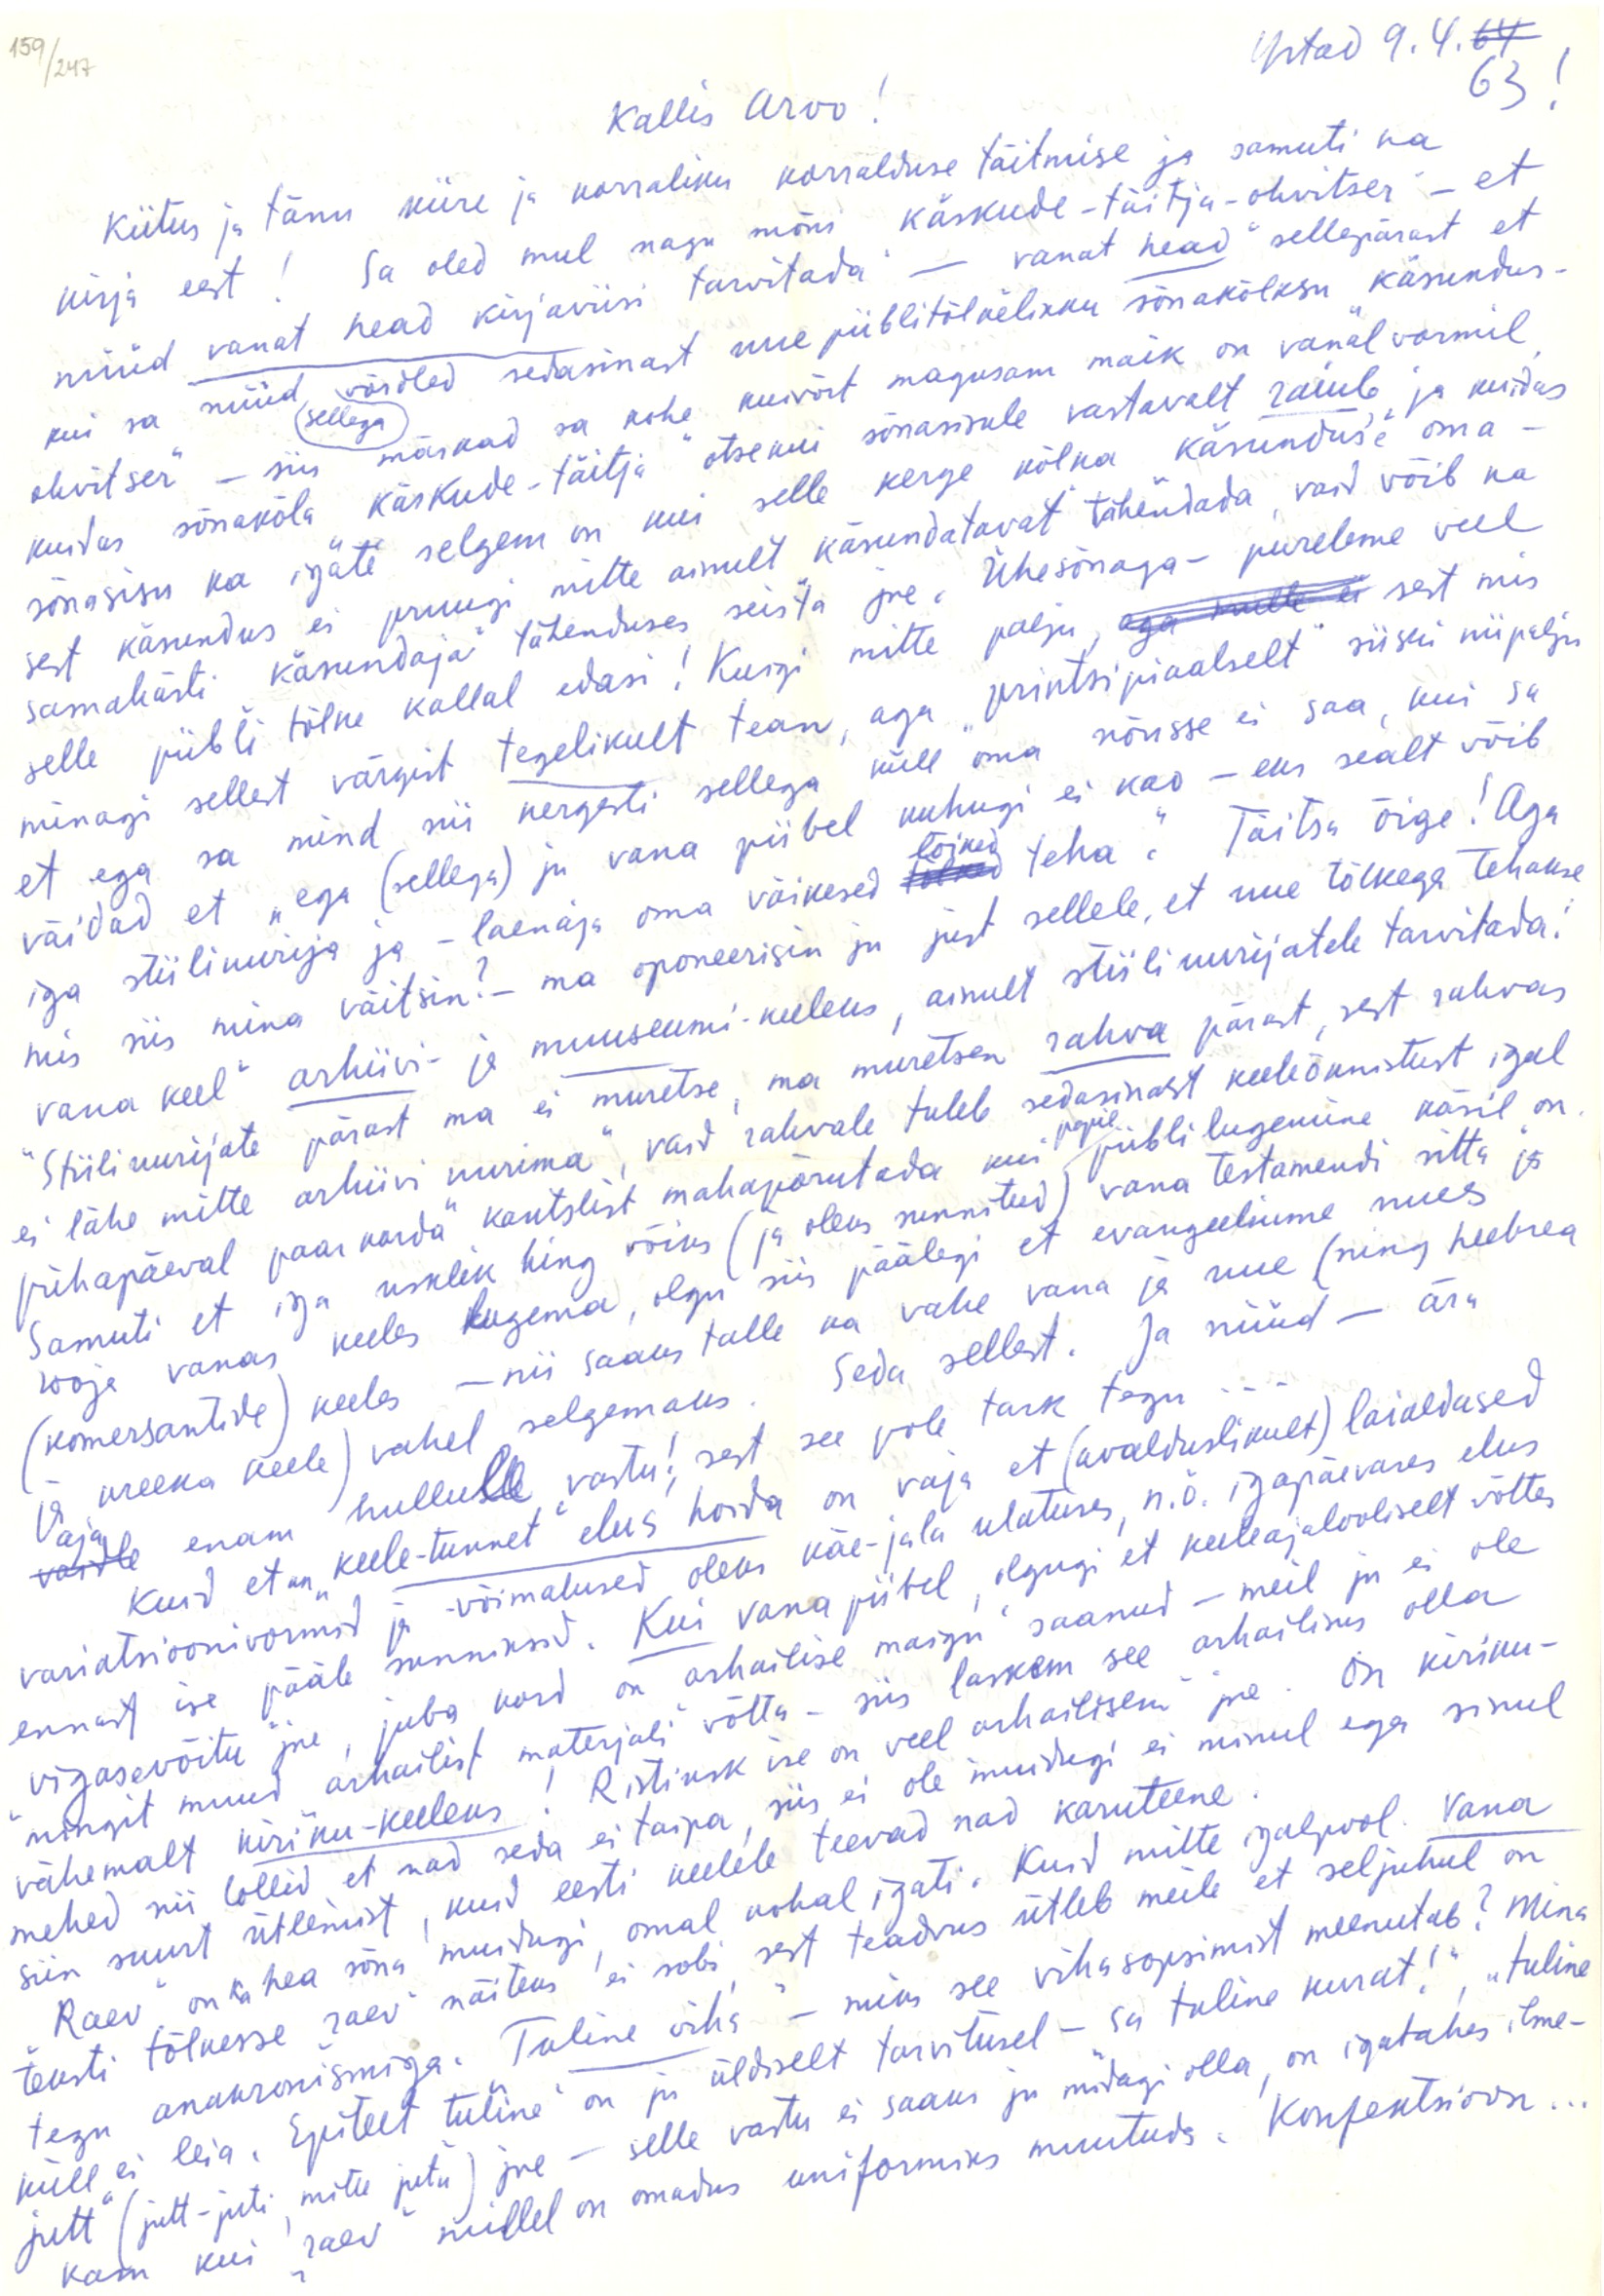 159/247
Ystad 9.4.64
63!
Kallis Arvo!
Kiitus ja tänu kiire ja korraliku korralduse täitmise ja samuti ka
kirja eest! Sa oled mul nagu mõni „käskude-täitja-ohvitser" – et
nüüd vanat head kirjaviisi tarvitada – „vanat head" sellepärast et
kui sa nüüd võrdled sedasinast uue piiblitõlkelikku sõnakõlksu „käsundus-
ohvitser" – siis sellega märkad sa kohe kuivõrt magusam maik on vanal vormil,
kuidas sõnakõla „käskude-täitja" otsekui sõnasisule vastavalt raiub ja kuidas
sõnasisu ka „igäte" selgem on kui selle kerge kõlka „käsunduse" oma –
sest käsundus ei pruugi mitte ainult käsundatavat tähendada, vaid võib ka
samahästi „käsundaja" tähenduses seista jne. Ühesõnaga – pureleme veel
selle piibli tõlke kallal edasi! Kuigi mitte palju, aga mulle ei sest mis
minagi sellest värgist tegelikult tean, aga „printsipiaalselt" siiski niipalju
et ega sa mind nii kergesti sellega küll oma nõusse ei saa, kui sa
väidad et „ega (sellega) ju vana piibel kuhugi ei kao – eks sealt võib
iga stiiliuurija ja – laenaja oma väikesed tõlked lõiked teha". Täitsa õige! Aga
mis siis mina väitsin? – ma oponeerisin ju just sellele, et uue tõlkega tehakse
vana keel „arhiivi- ja muuseumi-keeleks, ainult stiiliuurijatele tarvitada."
"Stiiliuurijate pärast ma ei muretse, ma muretsen rahva pärast, sest rahvas
ei lähe mitte arhiivi uurima", vaid rahvale tuleb sedasinast keeleõnnistust igal
pühapäeval „paar korda" kantslist mahapõrutada kui papil piiblilugemine käsil on.
Samuti et iga usklik hing võiks (ja oleks sunnitud) vana testamendi sitta ja
rooja vanas keeles lugema, olgu siis päälegi et evangeeliume uues
(komersantide) keeles – nii saaks talle ka vahe vana ja uue (ning heebrea
ja kreeka keele) vahel selgemaks. Seda sellest. Ja nüüd – ära
vaidle Vaja enam hullusele vastu!, sest see pole tark tegu ...
Kuid et „keele-tunnet" elus hoida on vaja et (avalduslikult) laialdased
variatsioonivormid ja -võimalused oleks käe-jala ulatuses, n.ö. igapäevases elus
ennast ise pääle sunniksid. Kui vana piibel, olgugi et keeleajalooliselt võttes
„vigasevõitu" jne, juba kord on arhailise maigu saanud – meil ju ei ole
"mingit muud arhailist materjali" võtta – siis laskem see arhailisus olla
vähemalt kiriku-keeleks! Ristiusk ise on veel „arhailisem" jne. On kiriku-
mehed nii lollid et nad seda ei taipa, siis ei ole muidugi ei minul ega sinul
siin suurt ütlemist, kuid eesti keelele teevad nad karuteene.
"Raev" on ka hea sõna muidugi, omal kohal igati. Kuid mitte igalpool. Vana
teksti tõlkesse „raev" näiteks ei sobi, sest teadvus ütleb meile et seljuhul on
tegu anakronismiga. „Tuline viha" – miks see vihasopsimist meenutab? Mina
küll ei leia. Epiteet „tuline" on ju üldiselt tarvitusel – „sa tuline kurat!", „tuline
jutt" (jutt-juti, mitte jutu) jne – selle vastu ei saaks ju midagi olla, on igatahes ilme-
kam kui „raev" millel on omadus uniformiks muutuda. Konfektsioon...